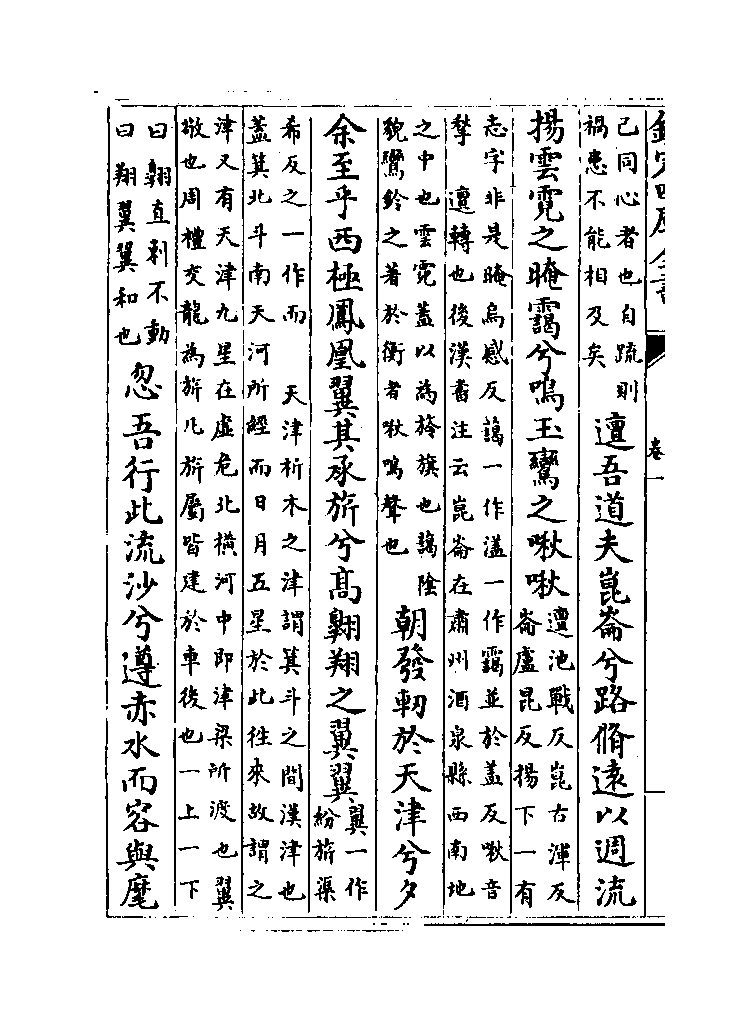 欽定四庫全書
卷一
己同心者也自疏則
禍患不能相及矣
邅吾道夫崑崙兮路脩遠以週流
揚雲霓之晻靄兮鳴玉鸞之啾啾
邅池戰反崑古渾反
崙盧昆反揚下一有
志字非是晻烏感反藹一作濭一作靄並於蓋反啾音
揫 邅轉也後漢書注云崑崙在肅州酒泉縣西南地
之中也雲霓蓋以為旍旗也藹陰
貌鸞鈴之著於衡者啾鳴聲也
朝發軔於天津兮夕
余至乎西極鳳凰翼其承旂兮高翺翔之翼翼
翼一作
紛旂渠
希反之一作而 天津析木之津謂箕斗之間漢津也
蓋箕北斗南天河所經而日月五星於此往來故謂之
津又有天津九星在虛危北橫河中即津梁所渡也翼
敬也周禮交龍為旂凡旂屬皆建於車後也一上一下
曰翺直刺不動
曰翔翼翼和也
忽吾行此流沙兮遵赤水而容與麾